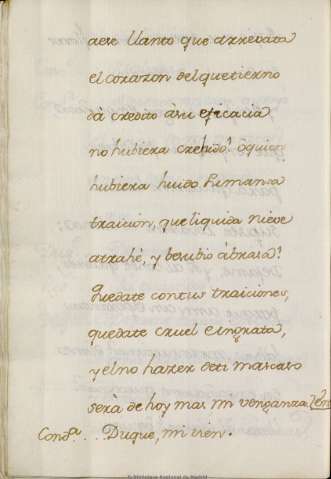 aese llanto que arrebata
el corazon del que tierno
dà credito à su eficacia
no hubiera creido! ò quien
hubiera huido humana
traicion, que liquida nieve
atrahé, y besubio abrasa!
Quedate con tus traiciones,
quedate cruel e ingrata,
y el no hazer de ti mas caso
serà de hoy mas mi venganza.
Cond.ª . . Duque, mi vien.
Biblioteca Nacional de España